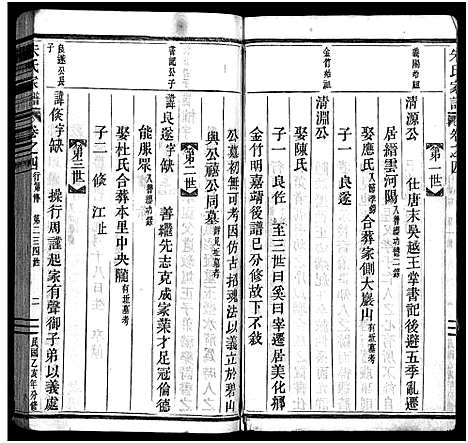 朱氏家譜 卷之四
第一世
義陽始祖
清源公 仕唐末吳越王掌書記後避五季亂遷
居縉雲河陽
娶應氏 合葬家側大巖山 有近墓考
子一 良遂
金竹始祖
清淵公
娶陳氏
子一 良佐 至三世曰奚曰宰遷居美化鄉
金竹明嘉靖後譜已分修故下不敘
公墓初無可考因仿古招魂法以義立於碧山
與公禧公同墓 詳見近墓考
第二世
書記公子
諱良遂字缺 善繼先志克成家業才足冠倫德
能服眾
娶杜氏合葬本里中央隴 有近墓考
子二 倏 江止
第三世
良遂公長子
諱倏字缺 操行周謹起家有聲御子弟以義處
朱氏家譜 卷之四 行第傳 第二三四世
民國乙亥年分修